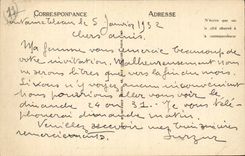 CORRESPONDANCE
ADRESSE
N'écrire que sur
le côté réservé à
la correspondance
le 5 janvier 1932
Chers amis,
Ma femme vous remercie beaucoup de
votre invitation. Malheureusement nous
ne serons libres que vers la fin du mois
Si vous n'y voyez aucun inconvénient
nous pourrions aller vous voir le
dimanche 24 ou 31. Je vous télé-
phonerai dimanche matin.
recevoir mes bien sincères
remerciements